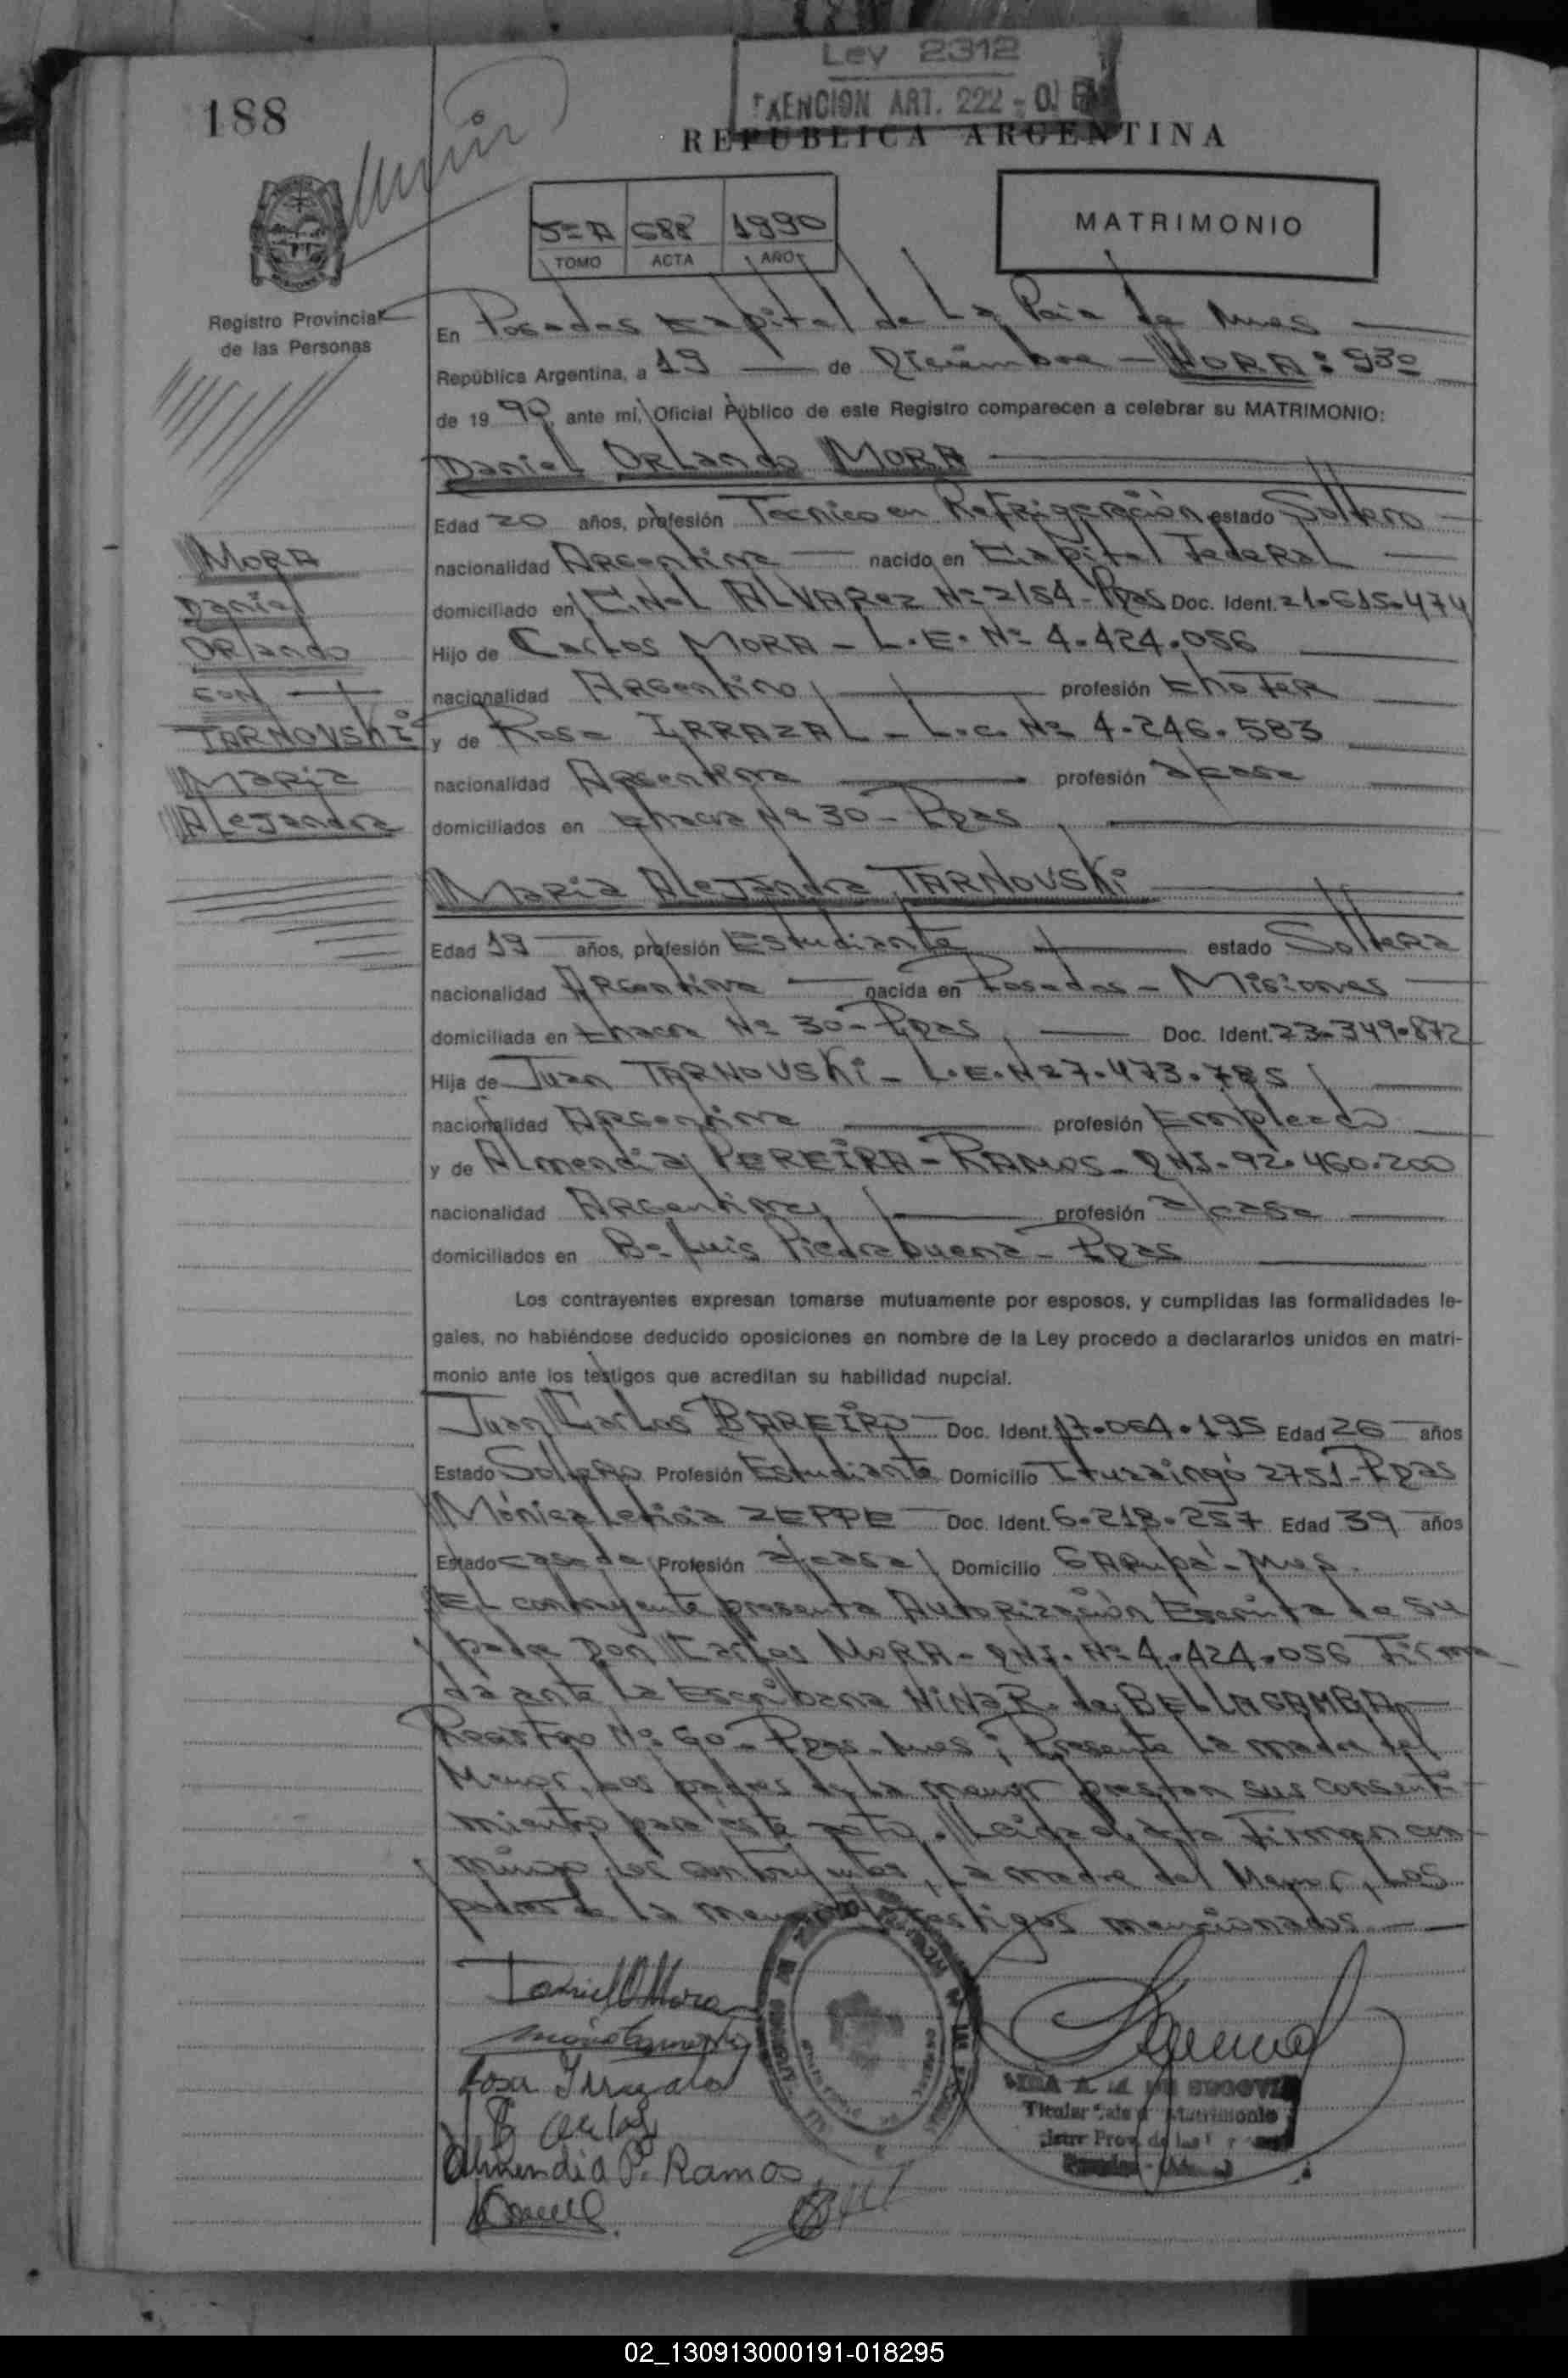 Ley 2312
EXENCION ART. 222 - C.F.
188
REPUBLICA ARGENTINA
5=A 688 1990
TOMO ACTA AÑO
MATRIMONIO
Registro Provincial
de las Personas
En Posadas Capital de La Pcia de Mnes
República Argentina, a 19 de Diciembre - HORA: 930
de 1990, ante mí, Oficial Público de este Registro comparecen a celebrar su MATRIMONIO:
Daniel ORLando MORA
Edad 20 años, profesión Tecnico en Refrigeración estado Soltero
nacionalidad Argentina nacido en Capital Federal
domiciliado en C.Nel ALVARez Nº 2154 - Ppas Doc. Ident. 21.615.474
Hijo de Carlos MORA - L.E. Nº 4.424.056
nacionalidad Argentino profesión Chofer
y de Rosa IRRAZAL - L.C. Nº 4.246.583
nacionalidad Argentina profesión a/casa
domiciliados en Chacra Nº 30 - Ppas
MORA
Daniel
ORLando
CON
TARNOVSKi
Maria
ALeJandra
Maria ALeJandra TARNOVSKi
Edad 19 años, profesión Estudiante estado Soltera
nacionalidad Argentina nacida en Posadas - Misiones
domiciliada en Chacra Nº 30 - Ppas Doc. Ident. 23.349.872
Hija de Juan TARNOVSKi - L.E. Nº 7.473.785
nacionalidad Argentina profesión Empleado
y de Almendia PEREIRA - RAMOS - DNI. 92.460.200
nacionalidad Argentina profesión a/casa
domiciliados en Bº Luis Piedrabuena - Ppas
Los contrayentes expresan tomarse mutuamente por esposos, y cumplidas las formalidades le-
gales, no habiéndose deducido oposiciones en nombre de la Ley procedo a declararlos unidos en matri-
monio ante los testigos que acreditan su habilidad nupcial.
Juan Carlos BAREIRO Doc. Ident. 17.064.195 Edad 26 años
Estado Soltero Profesión Estudiante Domicilio Ituzaingó 2751 - Ppas
Mónica Leticia ZEPPE Doc. Ident. 6.218.257 Edad 39 años
Estado casada Profesión a/casa Domicilio GARupá - Mnes.
EL contrayente presenta Autorización Escrita de su
padre Don Carlos MORA - DNI. Nº 4.424.056 Firma
da ante La Escribana NiNa R. de BELLAGAMBA
Registro Nº 60 - Ppas - Mnes; Presente la madre del
Menor, Los padres de La menor prestan sus consenti-
miento para este acto. Leida el Acta Firman con-
migo los contrayentes, La madre del Menor, Los
padres de la menor testigos mencionados
Daniel O Mora
Rosa Irrazal
Almendia P. Ramos
Titular Sala Matrimonio
02_130913000191-018295